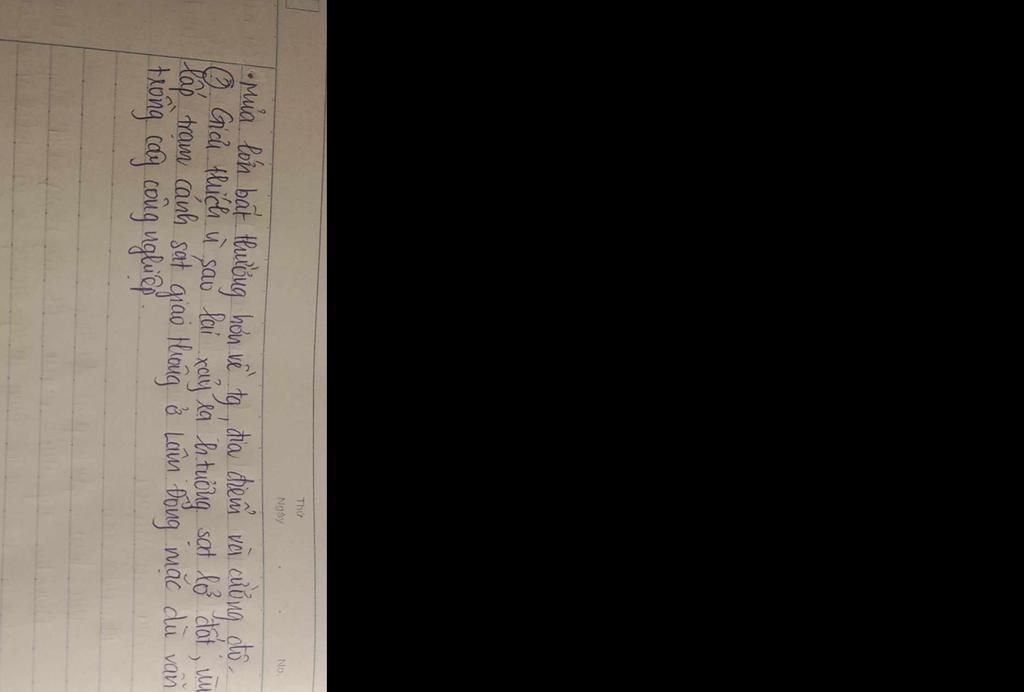 Thứ
Ngày
No.
• Mưa lớn bất thường hơn về tg, địa điểm và cường độ.
(?) Giải thích vì sao lại xảy ra h.tượng sạt lở đất,
lấp trạm cảnh sát giao thông ở Lâm Đồng mặc dù vẫn
trồng cây công nghiệp.